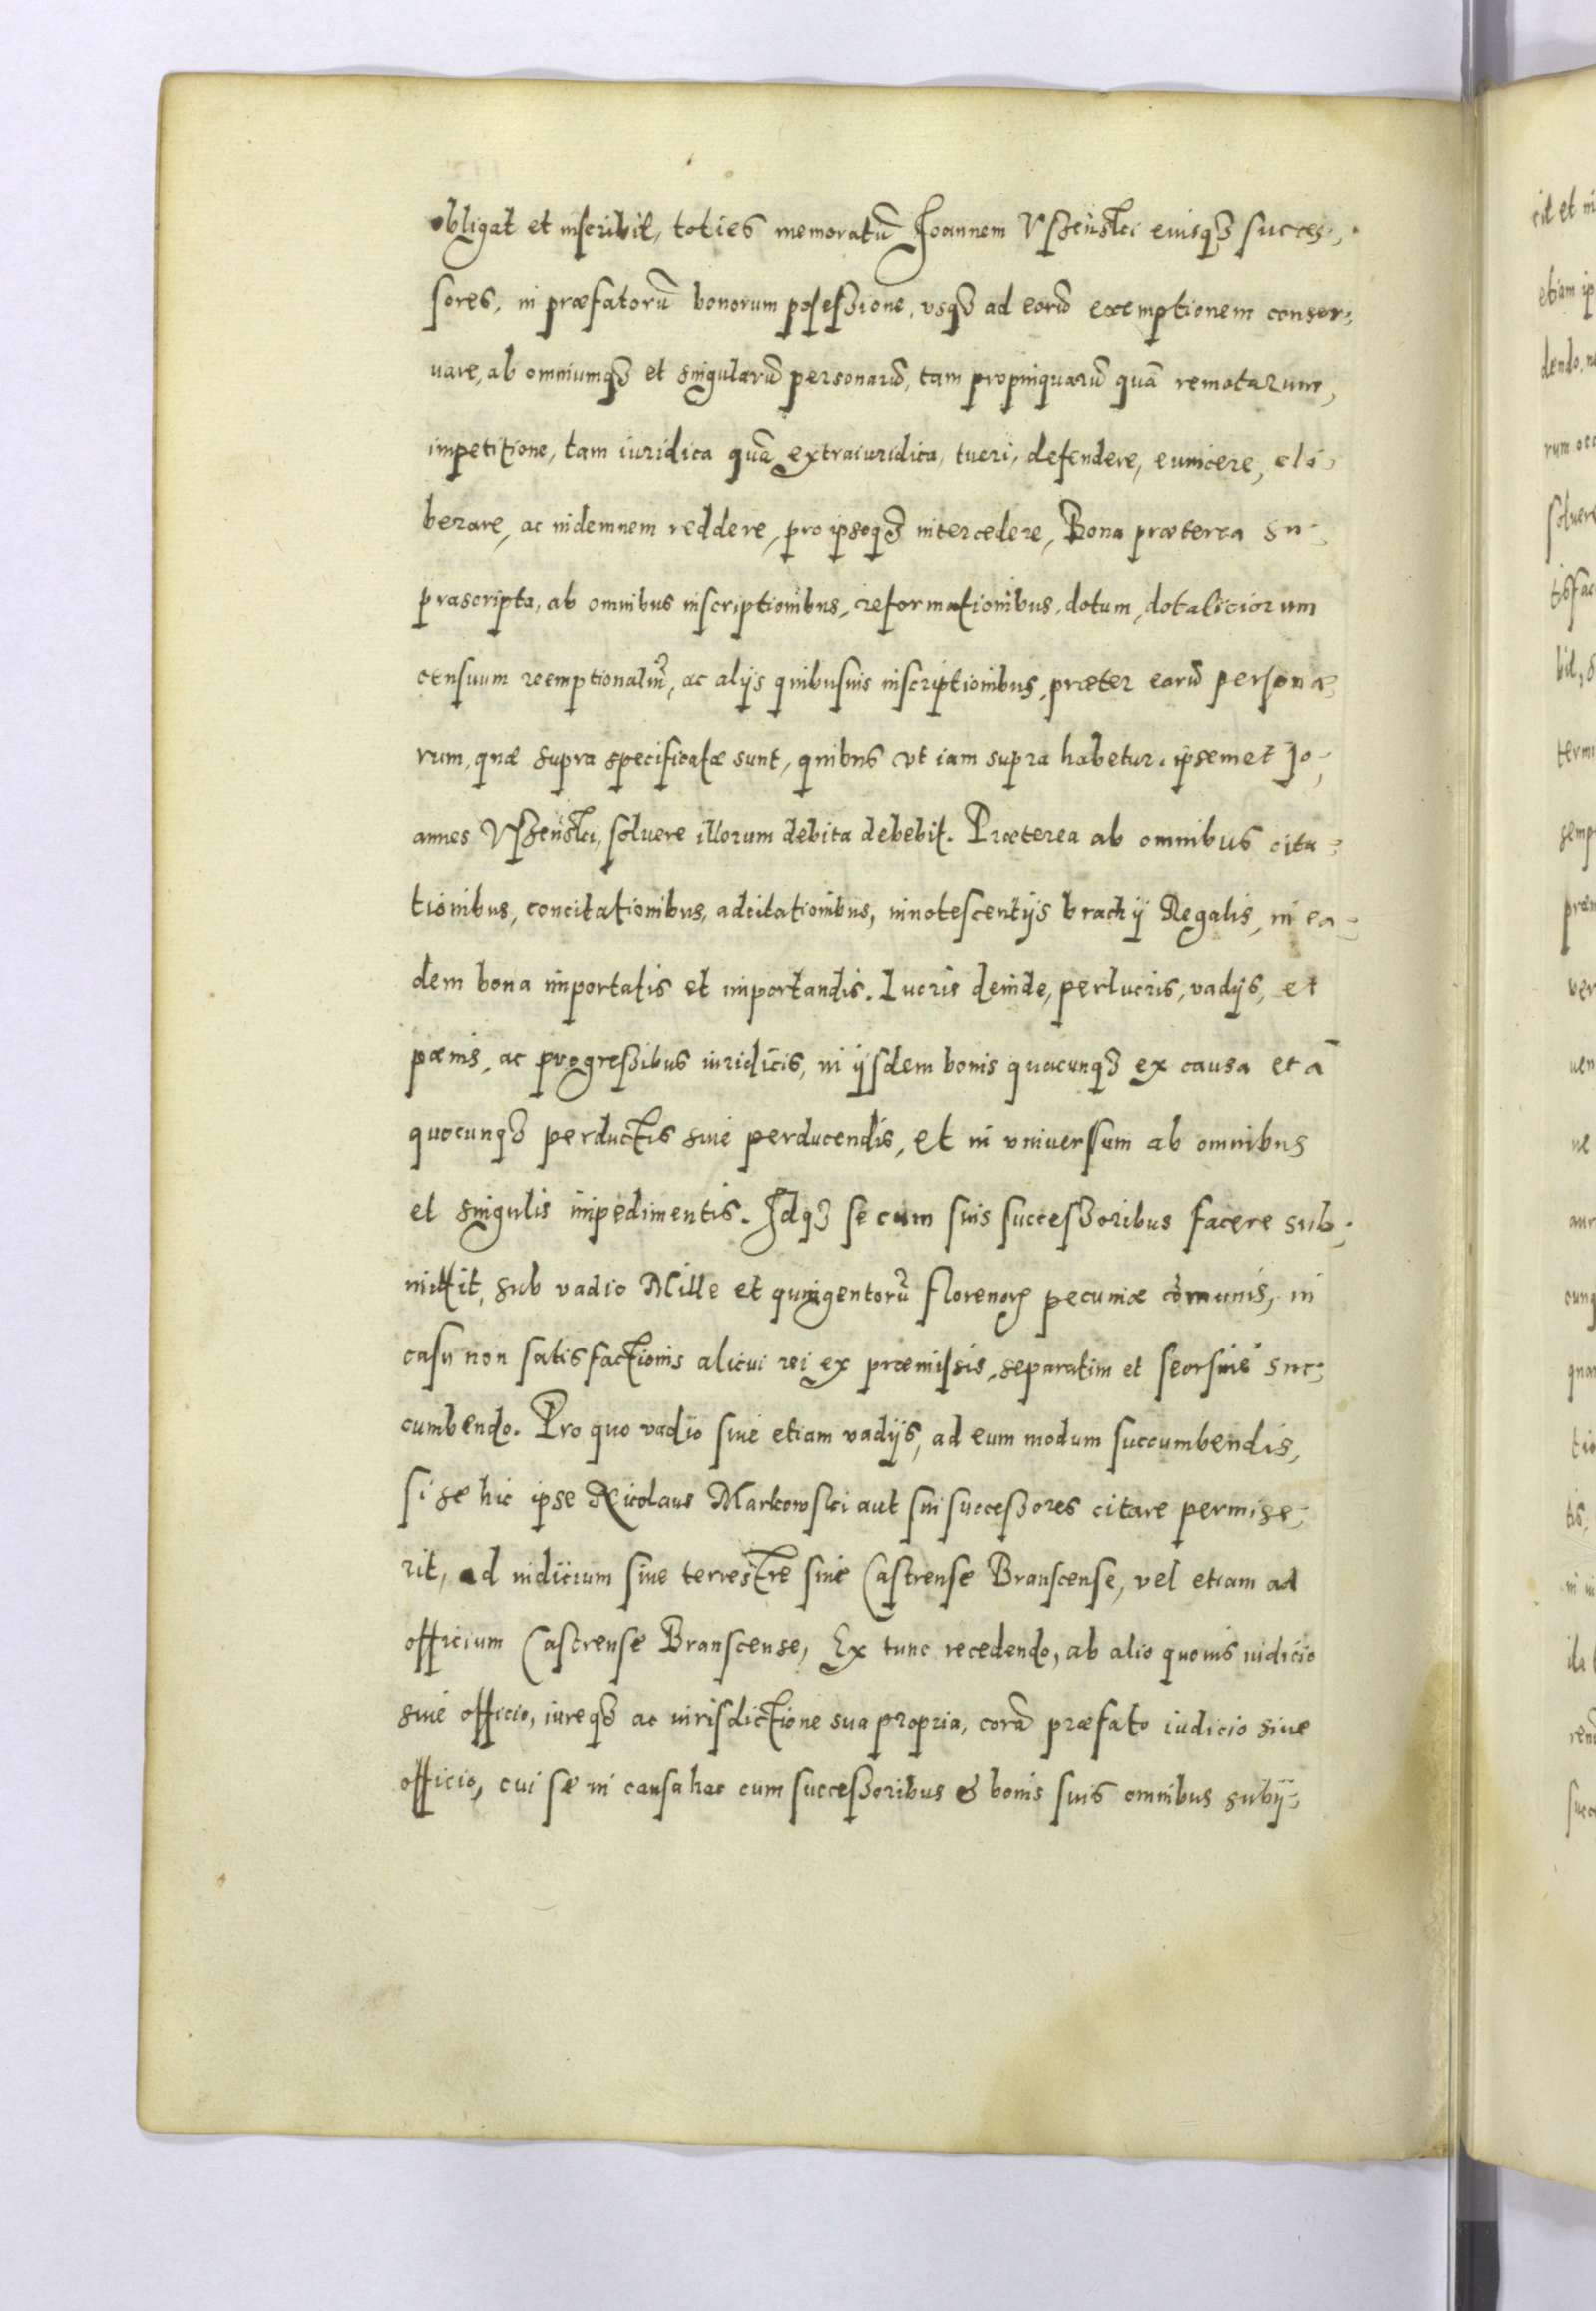 obligat et inscribit, toties memoratũ Joannem Vszeński eiusq3 succes-
sores, in præfatorũ bonorum possessione, vsq3 ad earũ exemptionem conser-
uare, ab omniumq3 et singularũ personarũ, tam propinquarũ quã remotarum,
impetitione, tam iuridica quã extraiuridica, tueri, defendere, euincere, eli-
berare, ac indemnem reddere, pro ipsoq3 intercedere, Bona præterea su-
prascripta, ab omnibus inscriptionibus, reformationibus, dotum, dotaliciorum
censuum reemptionaliũ, ac alijs quibusuis inscriptionibus, præter earũ persona-
rum, quæ supra specificatæ sunt, quibus vt iam supra habetur. ipsemet Jo-
annes Vszeński, soluere illorum debita debebit. Præterea ab omnibus cita-
tionibus, concitationibus, adcitationibus, innotescentijs brachij Regalis, in ea-
dem bona importatis et importandis. Lucris deinde, perlucris, vadijs, et
pænis, ac progressibus iuridicis, in ijsdem bonis quacunq3 ex causa et à
quocunq3 perductis siue perducendis, et in vniuersum ab omnibus
et singulis impedimentis. Idq3 se cum suis successoribus facere sub-
mittit, sub vadio Mille et quingentorũ florenorũ pecuniæ cõmunis, in
casu non satisfactionis alicui rei ex præmissis, separatim et seorsiuè suc-
cumbendo. Pro quo vadio siue etiam vadijs, ad eum modum succumbendis,
si se hic ipse Nicolaus Markowski aut sui successores citare permise-
rit, ad iudicium siue terrestre siue Castrense Branscense, vel etiam ad
officium Castrense Branscense, Ex tunc recedendo, ab alio quouis iudicio
siue officio, iureq3 ac iurisdictione sua propria, corã præfato iudicio siue
officio, cui se in causa hac cum successoribus & bonis suis omnibus subij-